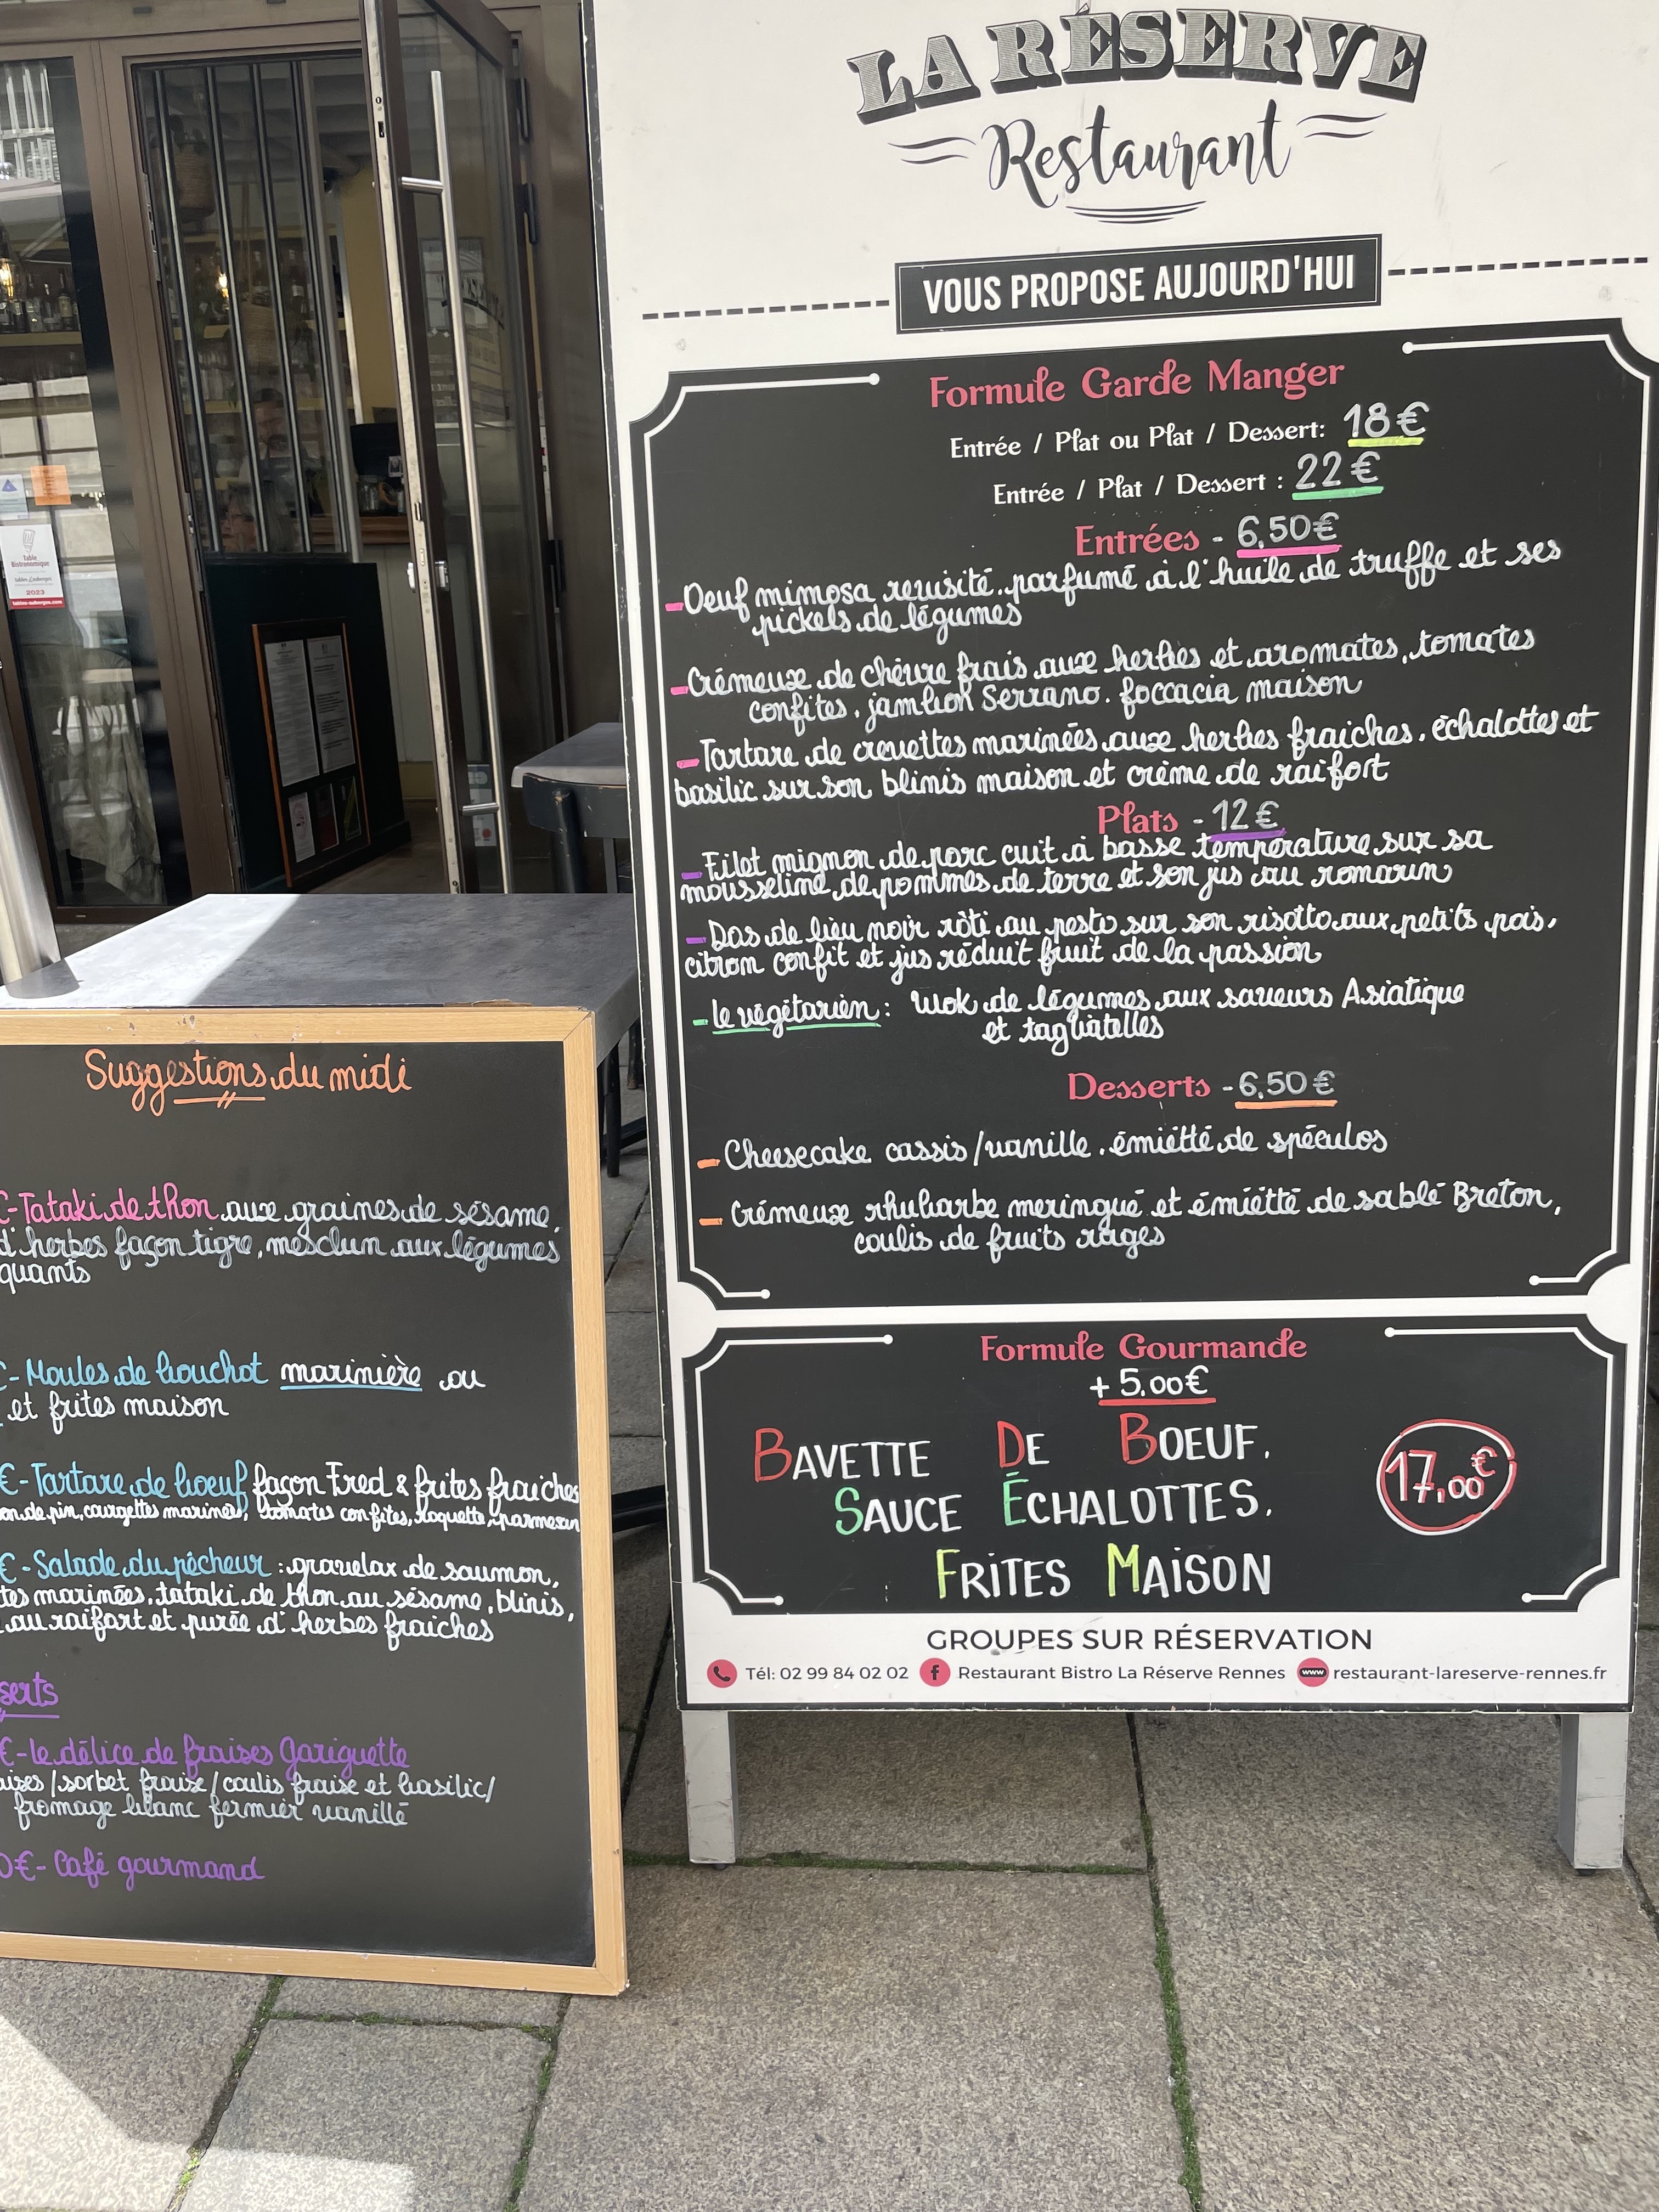 LA RÉSERVE
Restaurant
VOUS PROPOSE AUJOURD'HUI
Formule Garde Manger
Entrée / Plat ou Plat / Dessert: 18€
Entrée / Plat / Dessert : 22€
Entrées - 6,50€
- Oeuf mimosa revisité, parfumé à l'huile de truffe et ses
pickels de légumes
- Crémeux de chèvre frais aux herbes et aromates, tomates
confites, jambon Serrano, foccacia maison
- Tartare de crevettes marinées aux herbes fraiches, échalottes et
basilic sur son blinis maison et crème de raifort
Plats - 12€
- Filet mignon de porc cuit à basse température sur sa
mousseline de pommes de terre et son jus au romarin
- Dos de lieu noir rôti au pesto sur son risotto aux petits pois,
citron confit et jus réduit fruit de la passion
- le végétarien : Wok de légumes aux saveurs Asiatique
et tagliatelles
Desserts - 6,50€
- Cheesecake cassis/vanille, émietté de spéculos
- Crémeux rhubarbe meringué et émietté de sablé Breton,
coulis de fruits rouges
Formule Gourmande
+ 5,00€
BAVETTE DE BOEUF,
SAUCE ÉCHALOTTES,
FRITES MAISON
17,00€
GROUPES SUR RÉSERVATION
Tél: 02 99 84 02 02 f Restaurant Bistro La Réserve Rennes www restaurant-lareserve-rennes.fr
Suggestions du midi
€-Tataki de thon aux graines de sésame,
d'herbes façon tigre, mesclun aux légumes
quants
€- Moules de bouchot marinière ou
et frites maison
€-Tartare de boeuf façon Fred & frites fraiches
on de pin, courgettes marinés, tomates confites, roquette, parmesan
€-Salade du pêcheur : gravelax de saumon,
tes marinées, tataki de thon au sésame, blinis,
au raifort et purée d'herbes fraiches
serts
€-le délice de fraises Gariguette
aises/sorbet fraise/coulis fraise et basilic/
fromage blanc fermier vanillé
0€- Café gourmand
Table
Bistronomique
2023